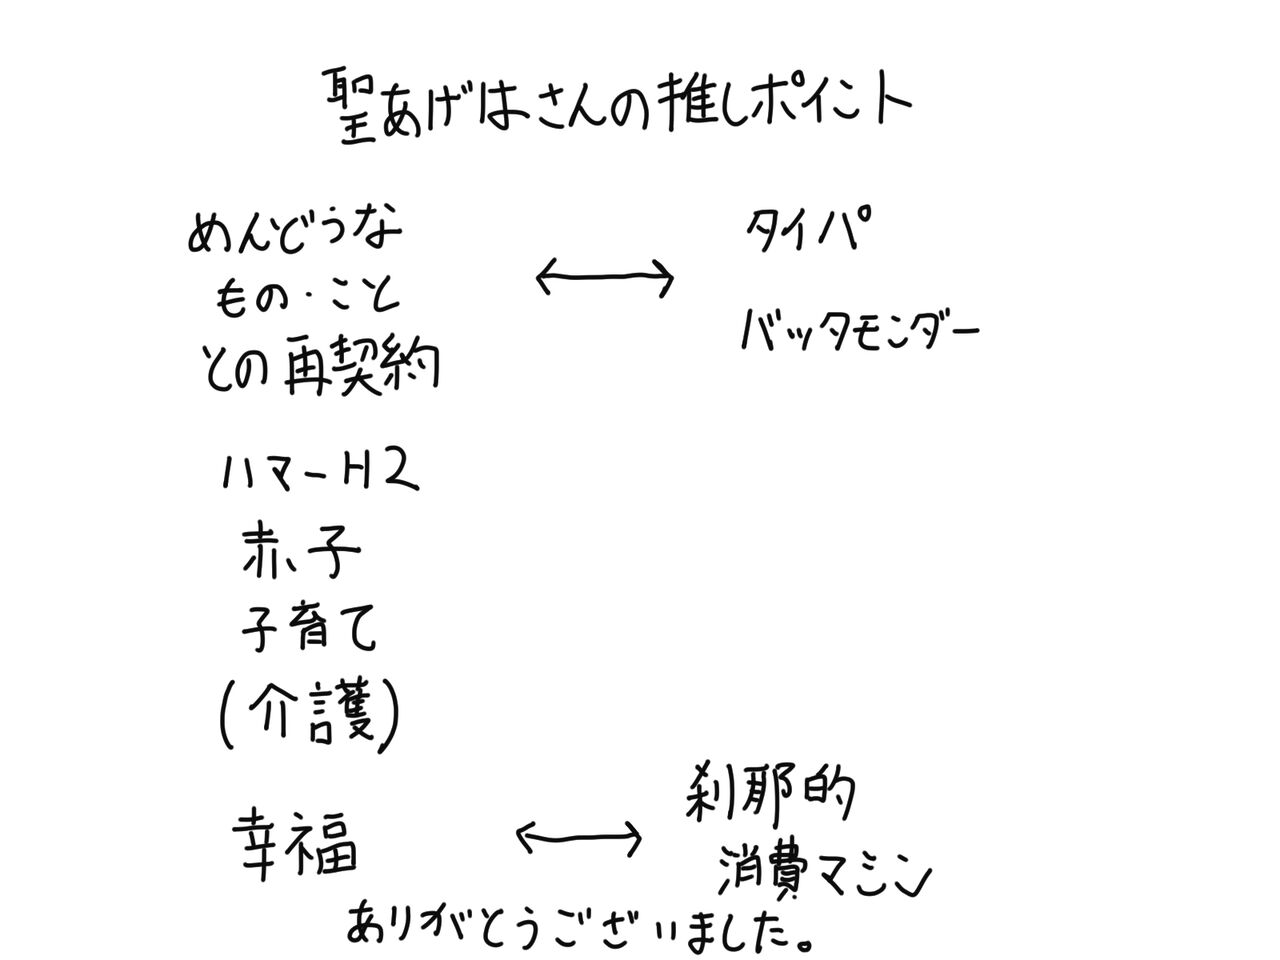 聖あげはさんの推しポイント
めんどうな
もの・こと
との再契約
タイパ
バッタモンダー
ハマーH2
赤子
子育て
(介護)
幸福
刹那的
消費マシン
ありがとうございました。